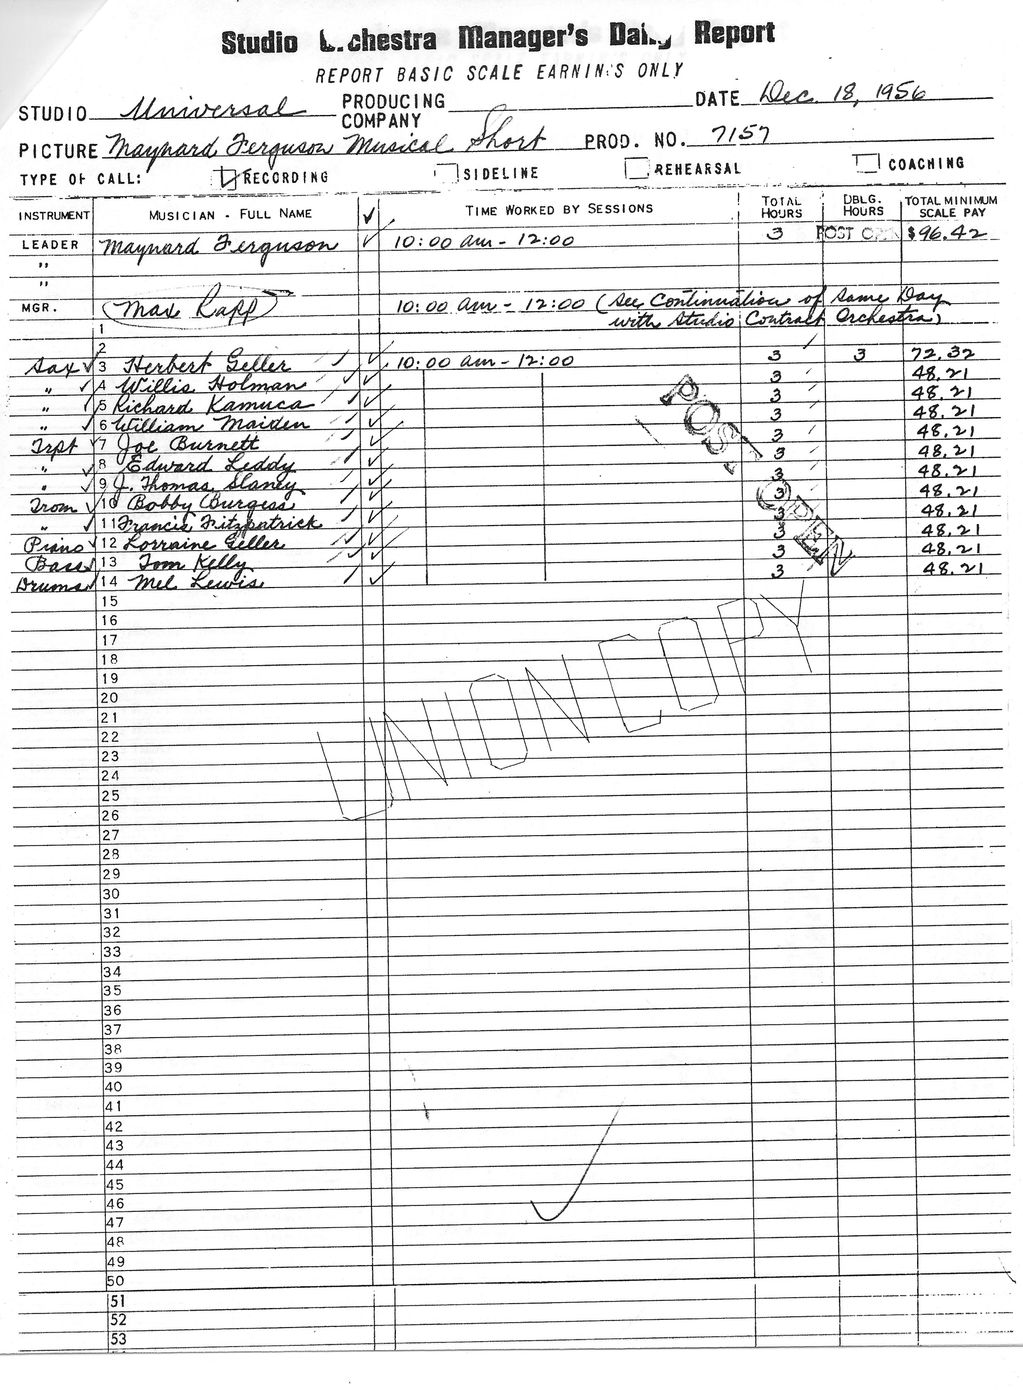 Studio Orchestra Manager's Daily Report
REPORT BASIC SCALE EARNINGS ONLY
STUDIO Universal PRODUCING COMPANY DATE Dec. 18, 1956
PICTURE Maynard Ferguson Musical Short PROD. NO. 7157
TYPE OF CALL: RECORDING SIDELINE REHEARSAL COACHING
INSTRUMENT MUSICIAN - FULL NAME ✓ TIME WORKED BY SESSIONS TOTAL HOURS DBLG. HOURS TOTAL MINIMUM SCALE PAY
LEADER Maynard Ferguson ✓ 10:00 am - 12:00 3 POST $96.42
"
"
MGR. Max Rapp 10:00 am - 12:00 (See Continuation of Same Day
with Studio Contract Orchestra)
1
2
Sax ✓ 3 Herbert Geller ✓ ✓ 10:00 am - 12:00 3 3 72.32
" ✓ 4 Willis Holman ✓ ✓ 3 48.21
" ✓ 5 Richard Kamuca ✓ ✓ 3 48.21
" ✓ 6 William Maiden ✓ ✓ 3 48.21
Trpt ✓ 7 Joe Burnett ✓ ✓ 3 48.21
" ✓ 8 Edward Leddy ✓ ✓ 3 48.21
" ✓ 9 J. Thomas Slaney ✓ ✓ 3 48.21
Trom ✓ 10 Bobby Burgess ✓ ✓ 3 48.21
" ✓ 11 Francis Fitzpatrick ✓ ✓ 3 48.21
Piano ✓ 12 Lorraine Geller ✓ ✓ 3 48.21
Bass ✓ 13 Tom Kelly ✓ ✓ 3 48.21
Drums ✓ 14 Mel Lewis ✓ ✓ 3 48.21
POST OPEN
15
16
17
18
19
20
UNION COPY
21
22
23
24
25
26
27
28
29
30
31
32
33
34
35
36
37
38
39
40
41
42
43
44
45
46
47
48
49
50
51
52
53